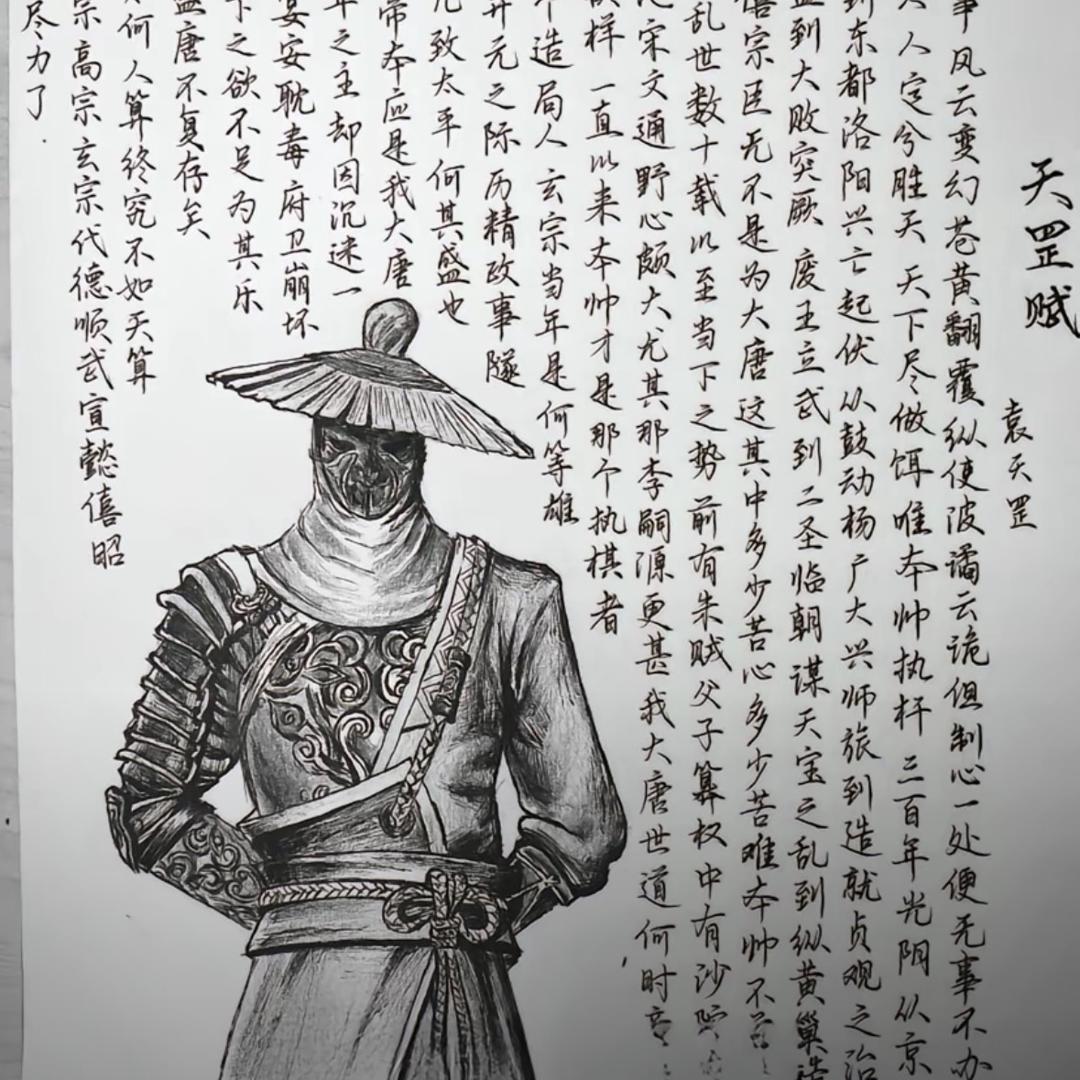 天罡赋
袁天罡
事风云变幻苍黄翻覆纵使波谲云诡但制心一处便无事不办
人定兮胜天 天下尽做饵唯本帅执杆 三百年光阴 从京
到东都洛阳兴亡起伏 从鼓动杨广大兴师旅到造就贞观之治
到大败突厥 废王立武到二圣临朝 谋天宝之乱到纵黄巢
僖宗 臣无不是为大唐 这其中多少苦心多少苦难本帅不
乱世数十载以至当下之势 前有朱贼父子算权中有沙陀
宋文通野心颇大尤其那李嗣源更甚我大唐世道何时竟
样 一直以来本帅才是那个执棋者
造局人 玄宗当年是何等雄
开元之际历精政事 隧
致太平 何其盛也
帝本应是我大唐
年之主 却因沉迷一
宴安耽毒 府卫崩坏
下之欲不足为其乐
盛唐不复存矣
何人算终究不如天算
宗高宗玄宗代德顺武宣懿僖昭
尽力了